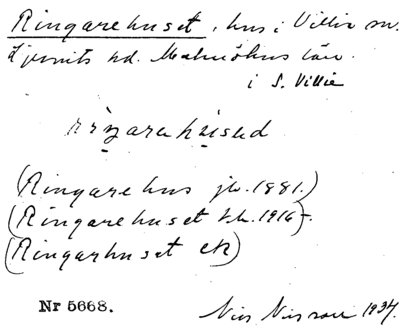 Ringarehuset, hus i Villie sn.
Ljunits hd. Malmöhus län.
i S. Villie
riŋarehu̇sed
(Ringarehus jb. 1881.)
(Ringarehuset hk. 1916.)
(Ringarhuset ek)
Nr 5668.
Nils Nilsson 1934.